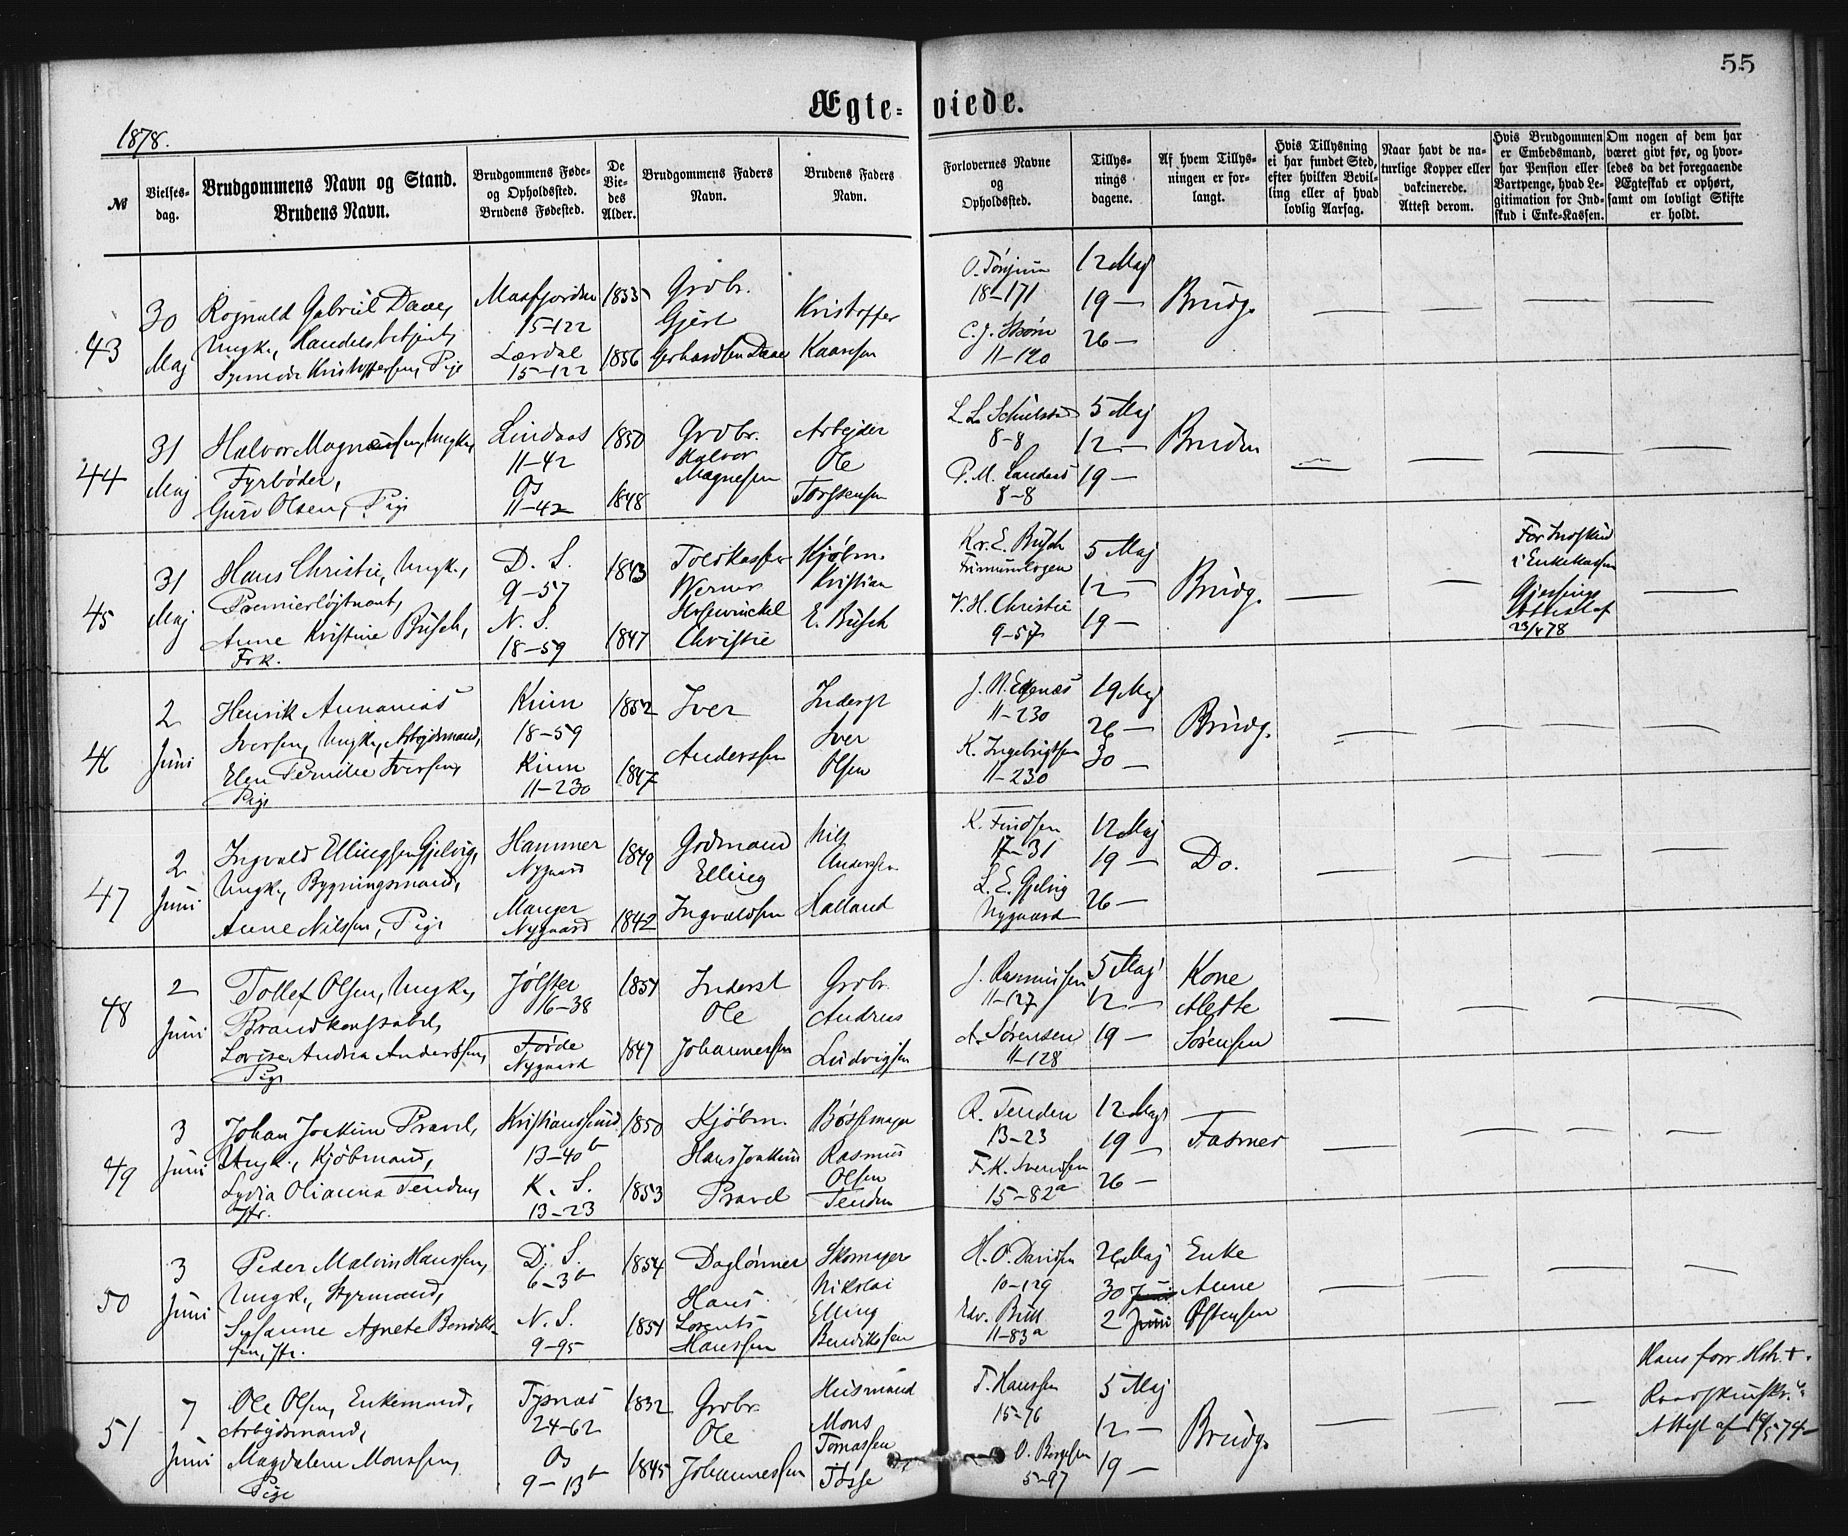 55
Ægte-
viede.
1878.
№
Vielses-
dag.
Brudgommens Navn og Stand.
Brudens Navn.
Brudgommens Føde-
og Opholdssted.
Brudens Fødested.
De
Vie-
des
Alder.
Brudgommens Faders
Navn.
Brudens Faders
Navn.
Forlovernes Navne
og
Opholdssted.
Tillys-
nings
dagene.
Af hvem Tillys-
ningen er for-
langt.
Hvis Tillysning
ei har fundet Sted,
efter hvilken Bevil-
ling eller af hvad
lovlig Aarsag.
Naar havt de na-
turlige Kopper eller
vakcinerede.
Attest derom.
Hvis Brudgommen
er Embedsmand,
har Pension eller
Vartpenge, hvad Le-
gitimation for Ind-
skud i Enke-Kassen.
Om nogen af dem har
været givt før, og hvor-
ledes da det foregaaende
Ægteskab er ophørt,
samt om lovligt Skifte
er holdt.
43
30
Maj
Rognald Gabriel Daae,
Ungk., Handelsbetjent,
Kristoffersen, Pige
Masfjorden
15-122
Lærdal
15-122
1855
1856
Grdbr.
Gjert
Gerhardsen Daae
Kristoffer
Kaarsen
18-171
11-120
12 Maj
19 —
26 —
Brudg.
44
31
Maj
Halvor Magnussen, Ungk.,
Fyrbøder,
Guro Olsen, Pige
Lindaas
11-42
Os
11-42
1850
1848
Grdbr.
Halvor
Magnesen
Arbejder
Ole
Torgersen
8-8
P. M. Sandaas
8-8
5 Maj
12 —
19 —
Bruden
45
31
Maj
Hans Christie, Ungk.,
Premierløjtnant,
Anne Kristine Busch,
Frk.
D. S.
9-57
N. S.
18-59
1843
1847
Toldkasserer
Werner
Hosewinckel
Christie
Kjøbm.
Kristian
E. Busch
Kr. E. Busch
Frimurerlogen
V. H. Christie
9-57
5 Maj
12 —
19 —
Brudg.
For Indskud
i Enkekassen
Attest af
23/4 78
46
2
Juni
Henrik Annanias
Iversen, Ungk., Arbejdsmand,
Elen Pernille Iversen,
Pige
Kinn
18-59
Kinn
11-230
1852
1847
Iver
Anderssen
Inderst
Iver
Olsen
11-230
K. Ingebrigtsen
11-230
19 Maj
26 —
30 —
Brudg.
47
2
Juni
Ingvald Ellingsen Gjelvig,
Ungk., Bygningsmand,
Anne Nilssen, Pige
Hammer
Nygaard
Manger
Nygaard
1849
1842
Grdmand
Elling
Ingvaldsen
Nils
Anderssen
Halland
K. Findsen
17-31
L. E. Gjelvig
Nygaard
12 Maj
19 —
26 —
Do.
48
2
Juni
Tollef Olsen, Ungk.,
Brandkonstabel,
Lovise Andria Anderssen,
Pige
Jølster
16-38
Førde
Nygaard
1851
1847
Inderst
Ole
Johannessen
Grdbr.
Andreas
Ludvigsen
J. Rasmussen
11-127
A. Sørensen
11-128
5 Maj
12 —
19 —
Kone
Alette
Sørensen
49
3
Juni
Johan Joakim Pravel,
Ungk., Kjøbmand,
Lydia Olianna Tenden,
Jfr.
Kristianssund
13-40b
K. S.
13-23
1850
1853
Kjøbm.
Hans Joakim
Pravel
Bøssemager
Rasmus
Olsen
Tenden
R. Tenden
13-23
F. K. Svendsen
15-82a
12 Maj
19 —
26 —
Fasmer
50
3
Juni
Peder Malvin Hanssen,
Ungk., Styrmand,
Susanne Agnete Bendik-
sen, Jfr.
D. S.
6-3b
N. S.
9-95
1854
1851
Daglønner
Hans
Lorents
Hanssen
Skomager
Nikolai
Elling
Bendiksen
H. O. Davidsen
10-129
Edv. Brill
11-83a
26 Maj
30
2 Juni
Enke
Anne
Østensen
51
7
Juni
Ole Olsen, Enkemand,
Arbejdsmand,
Magdalene Monssen,
Pige
Tysnæs
24-62
Os
9-13b
1832
1845
Grdbr.
Ole
Johannessen
Husmand
Mons
Tomassen
Tøsse
T. Hanssen
15-76
O. Børgesen
5-97
5 Maj
12 —
19 —
Brudg.
Hans forr. Hstr. +.
Attest af